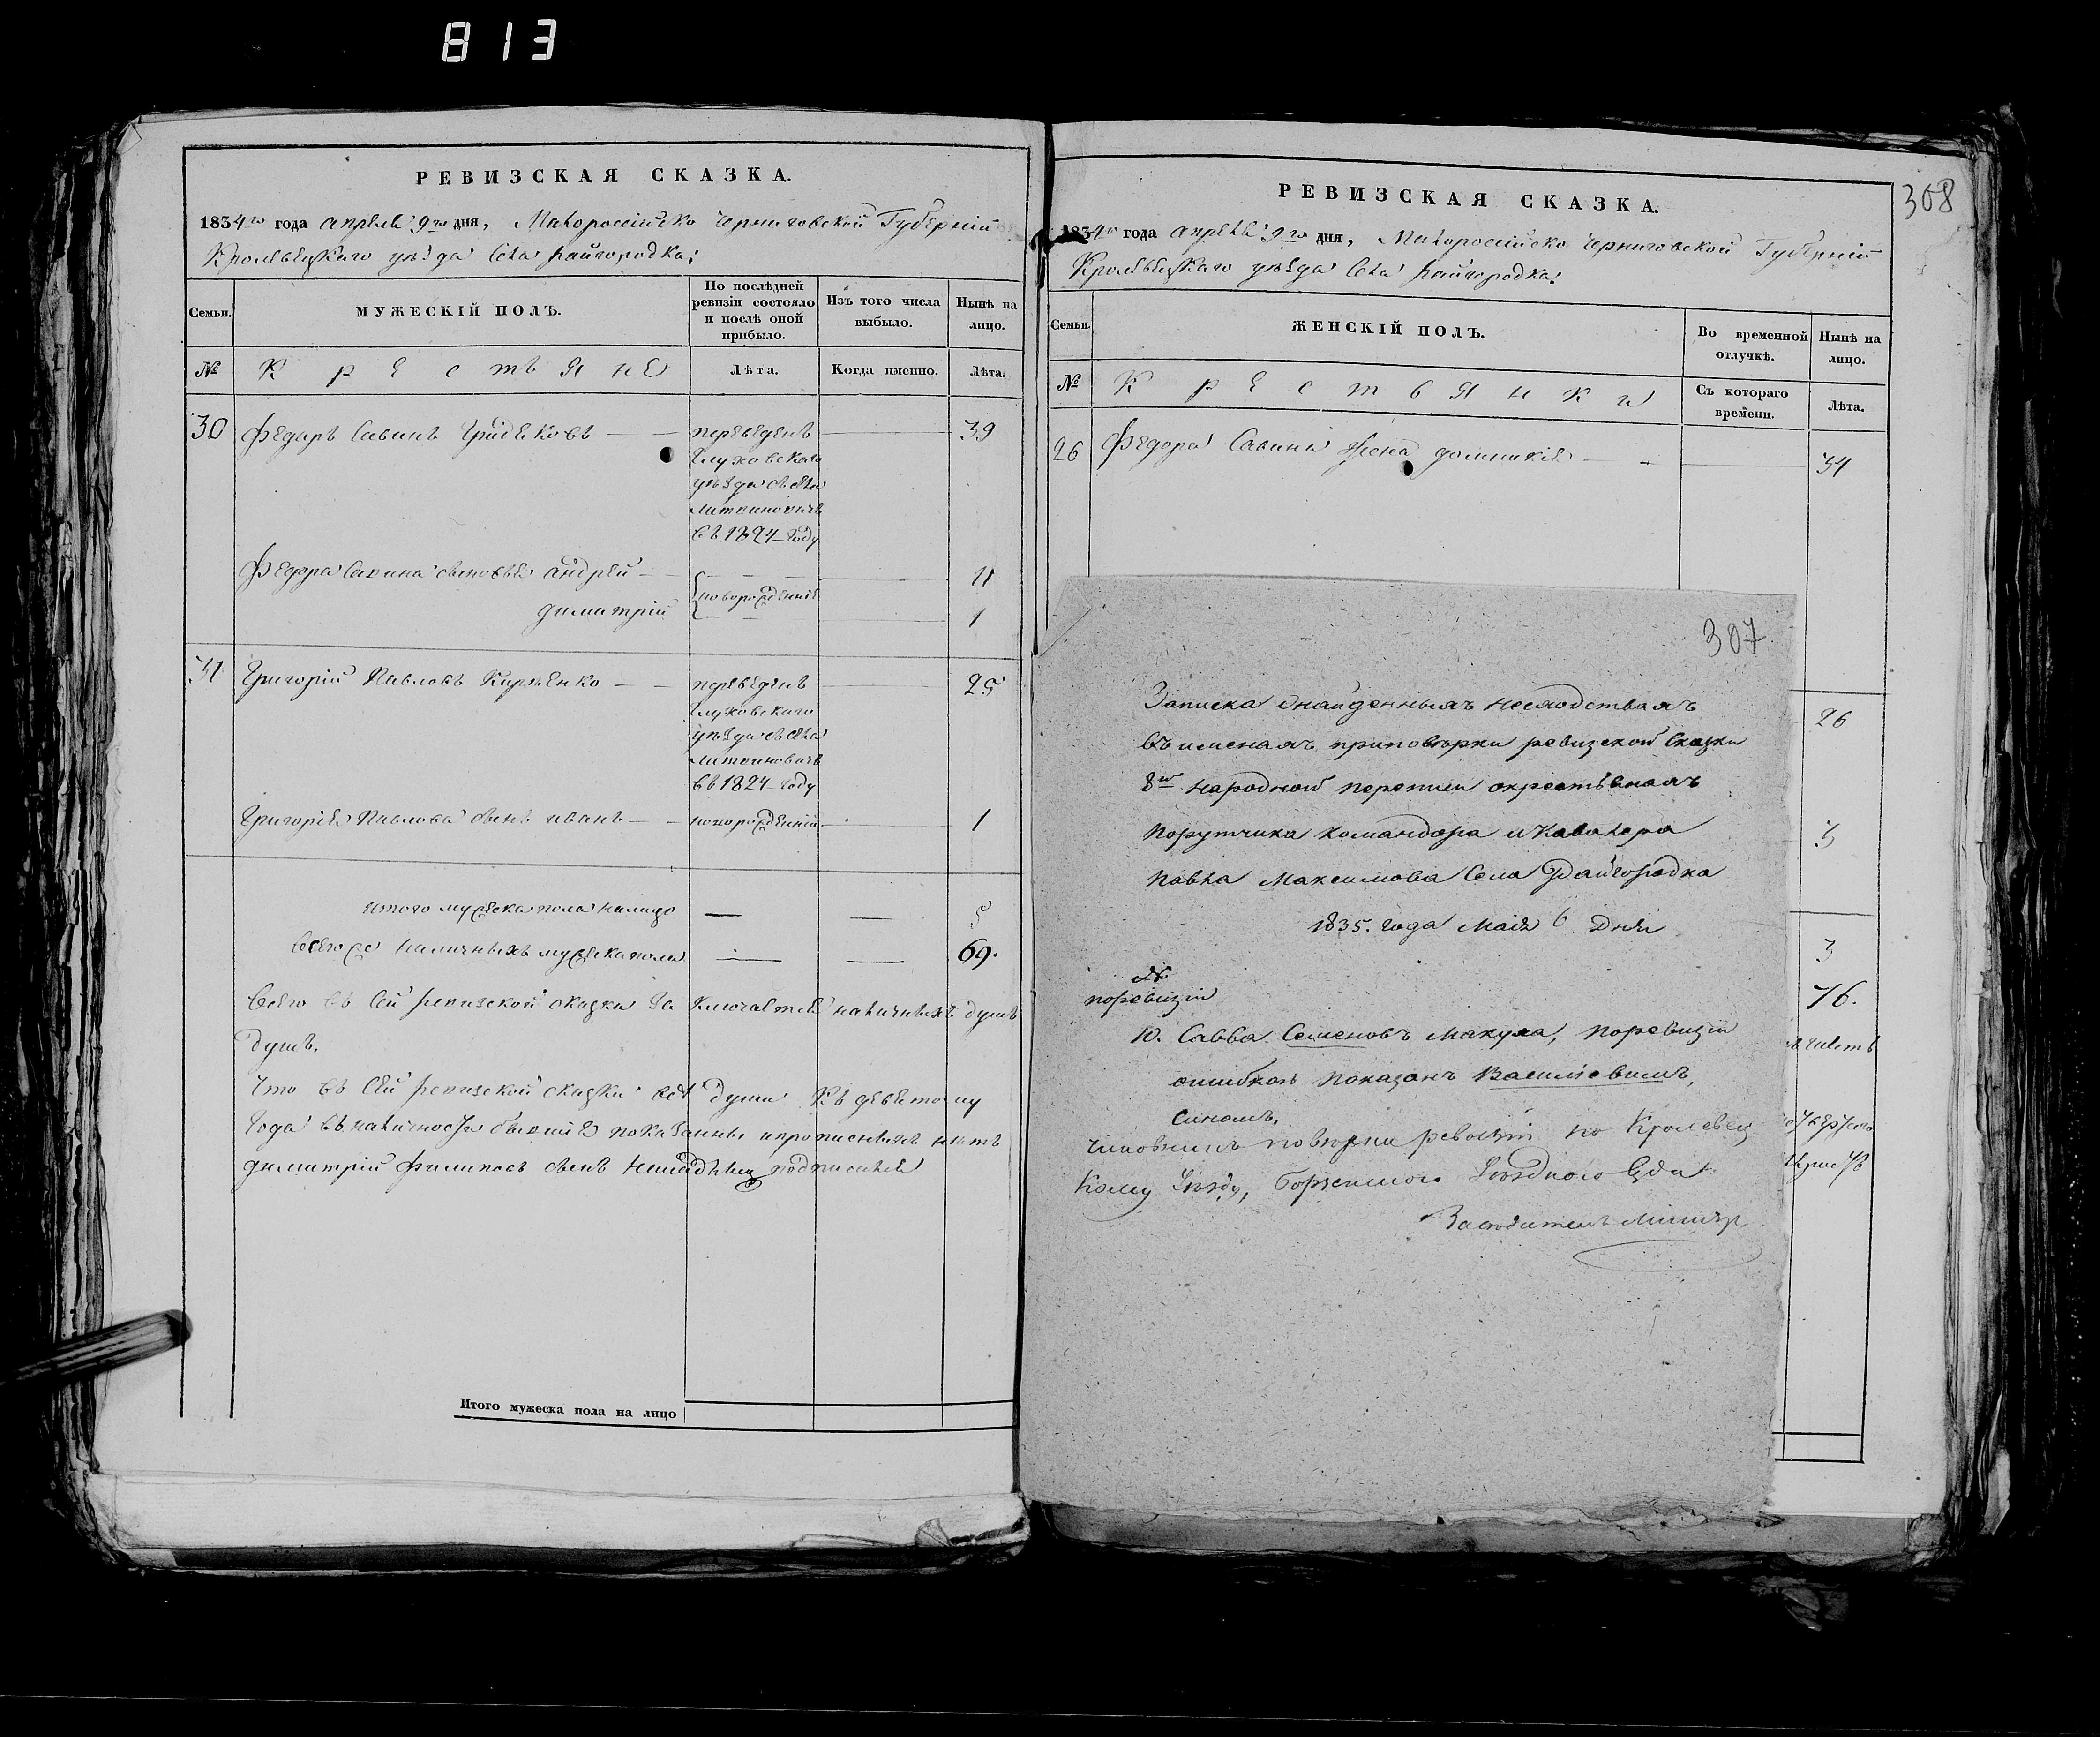 813
РЕВИЗСКАЯ СКАЗКА.
1834го года апреля 9го дня, Малороссийско Черниговской Губернии
Кролевецкаго уезда Села Райгородка:
Семьи.
МУЖЕСКІЙ ПОЛЪ.
По послѣдней ревизіи состояло и послѣ оной прибыло.
Изъ того числа выбыло.
Нынѣ на лицо.
№
Крестьяне
Лѣта.
Когда именно.
Лѣта.
30 Федаръ Савинъ — переведенъ — 39
Глуховскаго
уезда съ села
Литвиновичъ
въ 1824 году
Федора Савина сыновья андрей — 11
новорожденние
димитрій 1
31 Григорій Павловъ — переведенъ — 25
Глуховскаго
уезда съ села
Литвиновичъ
въ 1824 году
Григорія Павлова сынъ иванъ — новорожденній — 1
итого мужеска пола налицо — — 5
всего наличныхъ мужеска пола — — 69.
Всего въ сей ревизской сказки заключается наличныхъ душъ
душъ.
Что въ сей ревизской сказки все души къ девятому
года въ наличности показанны и прописныхъ нетъ
димитрій сынъ подписался
Итого мужеска пола на лицо
308
РЕВИЗСКАЯ СКАЗКА.
1834го года апреля 9го дня, Малороссийско Черниговской Губернии
Кролевецкаго уезда Села Райгородка:
Семьи.
ЖЕНСКІЙ ПОЛЪ.
Во временной отлучкѣ.
Нынѣ на лицо.
№
Крестьянки
Съ котораго времени.
Лѣта.
26 Федора Савина жена домникія — — 34
26
3
3
76.
307
Записка о найденныхъ несходствахъ
въ именахъ при повѣрки ревизской сказки
8й народной переписи о крестьянахъ
Порутчика командора и Кавалера
Павла Максимова Села Райгородка
1835. года Маія 6 Дня
№
по ревизіи
10. Савва Семеновъ Макуха, по ревизіи
ошибкою показанъ Василіевимъ,
синомъ.
Чиновникъ повѣрки ревизіи по Кролевец
кому Уѣзду, Борзенского Уѣздного Суда
Заседатель